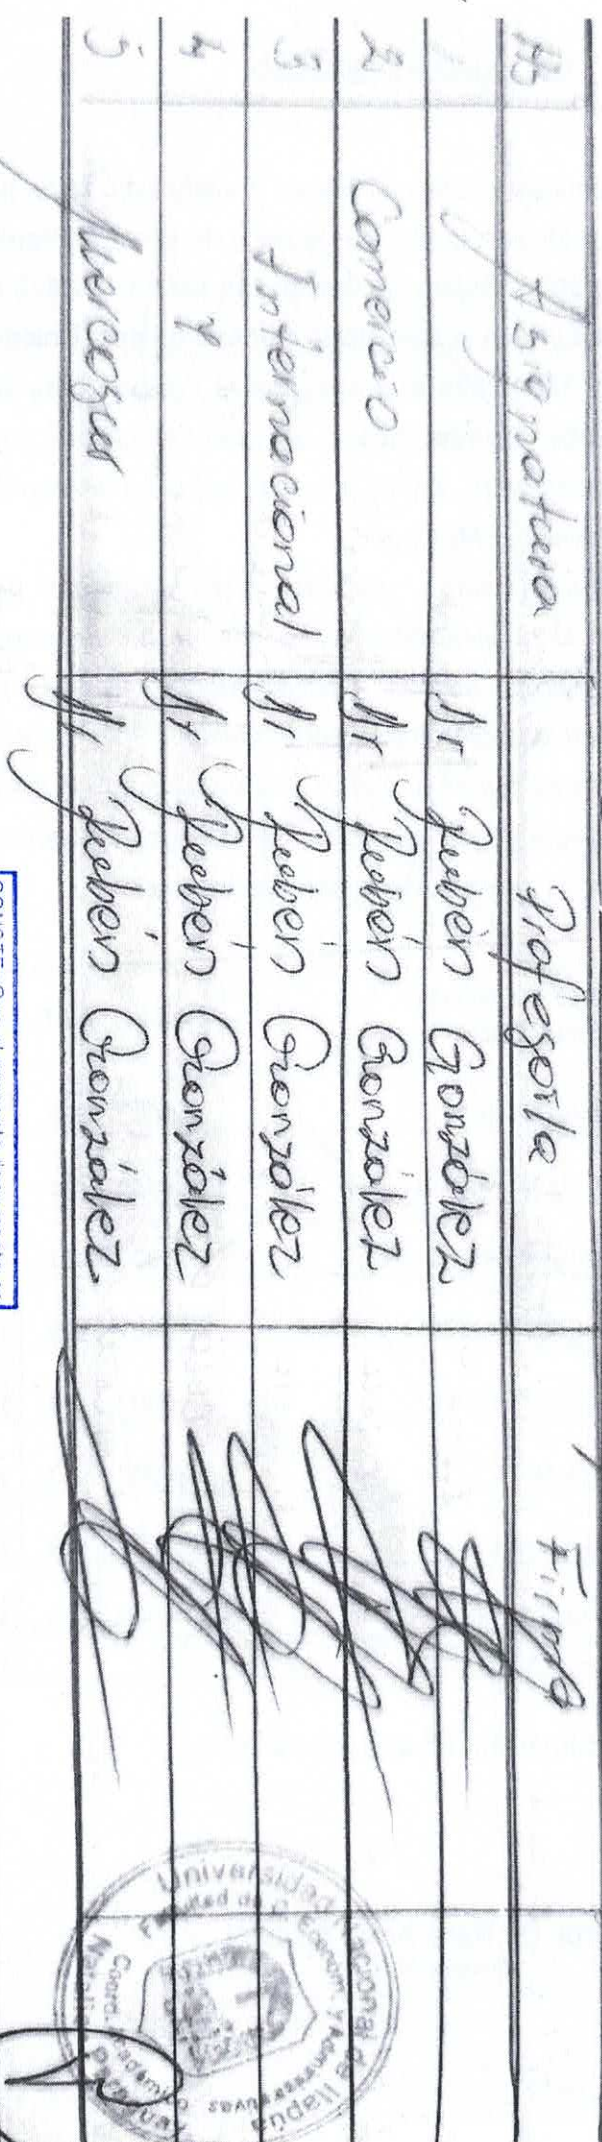 Hs Asignatura Profesor/a Firma
1 Dr Rubén González
2 Comercio Dr Rubén González
3 Internacional Dr Rubén González
4 y Dr Rubén González
5 Mercosur Dr Rubén González
Universidad Nacional de Itapúa
Facultad de C. Econom. y Administrativas
Coord. Académico
Natalio Paraguay